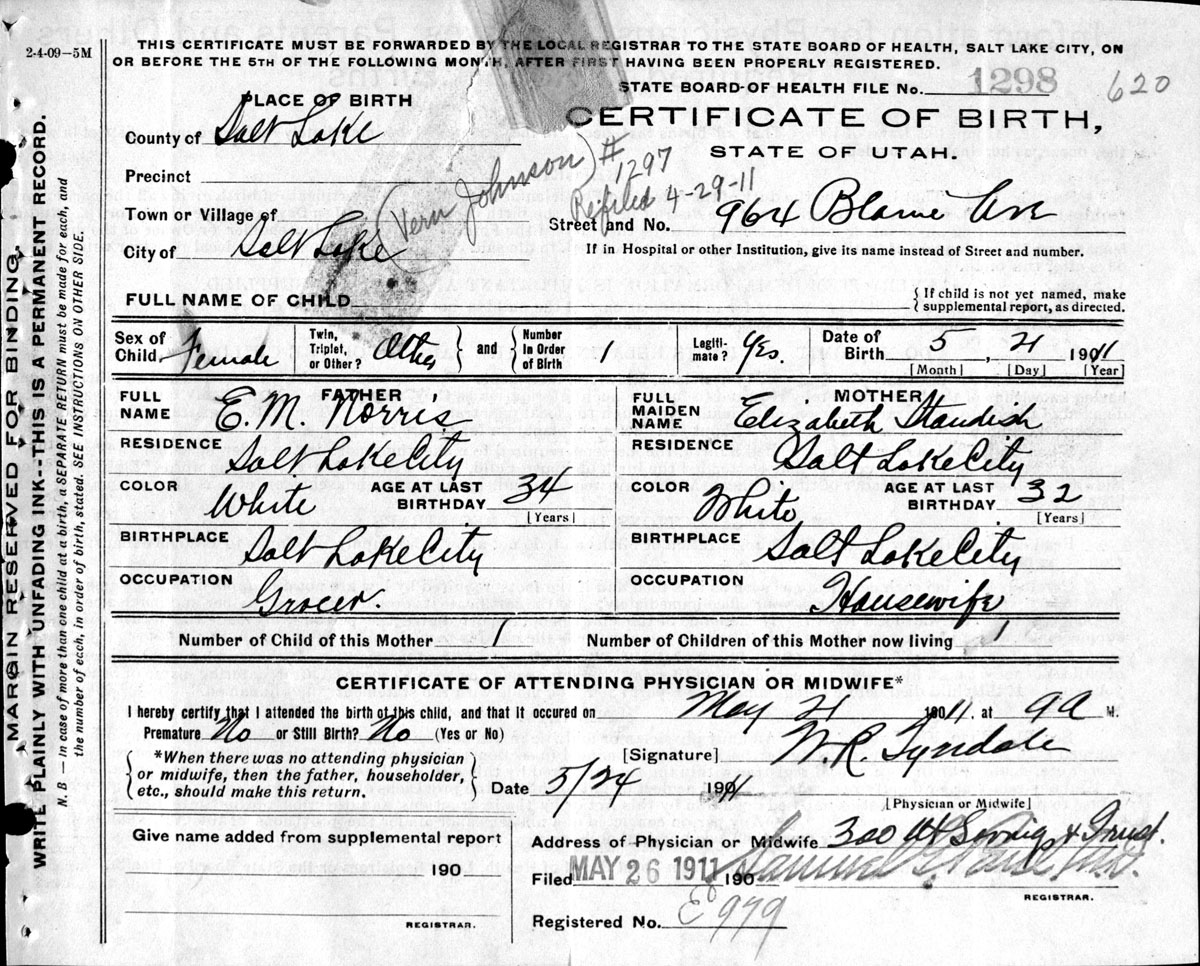 2-4-09—5M
THIS CERTIFICATE MUST BE FORWARDED BY THE LOCAL REGISTRAR TO THE STATE BOARD OF HEALTH, SALT LAKE CITY, ON
OR BEFORE THE 5TH OF THE FOLLOWING MONTH, AFTER FIRST HAVING BEEN PROPERLY REGISTERED.
STATE BOARD OF HEALTH FILE No. 1298 620
PLACE OF BIRTH
CERTIFICATE OF BIRTH,
STATE OF UTAH.
County of Salt Lake
Precinct
(Vern Johnson) # 1297
Refiled 4-29-11
Town or Village of
Street and No. 964 Blaine Ave
City of Salt Lake
If in Hospital or other Institution, give its name instead of Street and number.
FULL NAME OF CHILD
{If child is not yet named, make
supplemental report, as directed.
Sex of Child, Female Twin, Triplet, or Other? Other and Number in Order of Birth 1 Legiti- mate? Yes. Date of Birth 5, 21 1911
[Month] [Day] [Year]
FATHER
FULL NAME E. M. Norris
MOTHER
FULL MAIDEN NAME Elizabeth Standish
RESIDENCE Salt Lake City
RESIDENCE Salt Lake City
COLOR White AGE AT LAST BIRTHDAY 34 [Years]
COLOR White AGE AT LAST BIRTHDAY 32 [Years]
BIRTHPLACE Salt Lake City
BIRTHPLACE Salt Lake City
OCCUPATION Grocer.
OCCUPATION Housewife
Number of Child of this Mother 1
Number of Children of this Mother now living 1
CERTIFICATE OF ATTENDING PHYSICIAN OR MIDWIFE*
I hereby certify that I attended the birth of this child, and that it occured on May 21 1911, at 9 a M.
Premature No or Still Birth? No (Yes or No)
*When there was no attending physician
or midwife, then the father, householder,
etc., should make this return.
[Signature] W. R. Tyndale
Date 5/24 1911
[Physician or Midwife]
Give name added from supplemental report
190
REGISTRAR.
Address of Physician or Midwife 300 Ut Savings & Trust.
Filed MAY 26 1911 190 Samuel G.
REGISTRAR.
Registered No. E 979
MARGIN RESERVED FOR BINDING.
WRITE PLAINLY WITH UNFADING INK--THIS IS A PERMANENT RECORD.
N. B — In case of more than one child at a birth, a SEPARATE RETURN must be made for each, and
the number of each, in order of birth, stated. SEE INSTRUCTIONS ON OTHER SIDE.